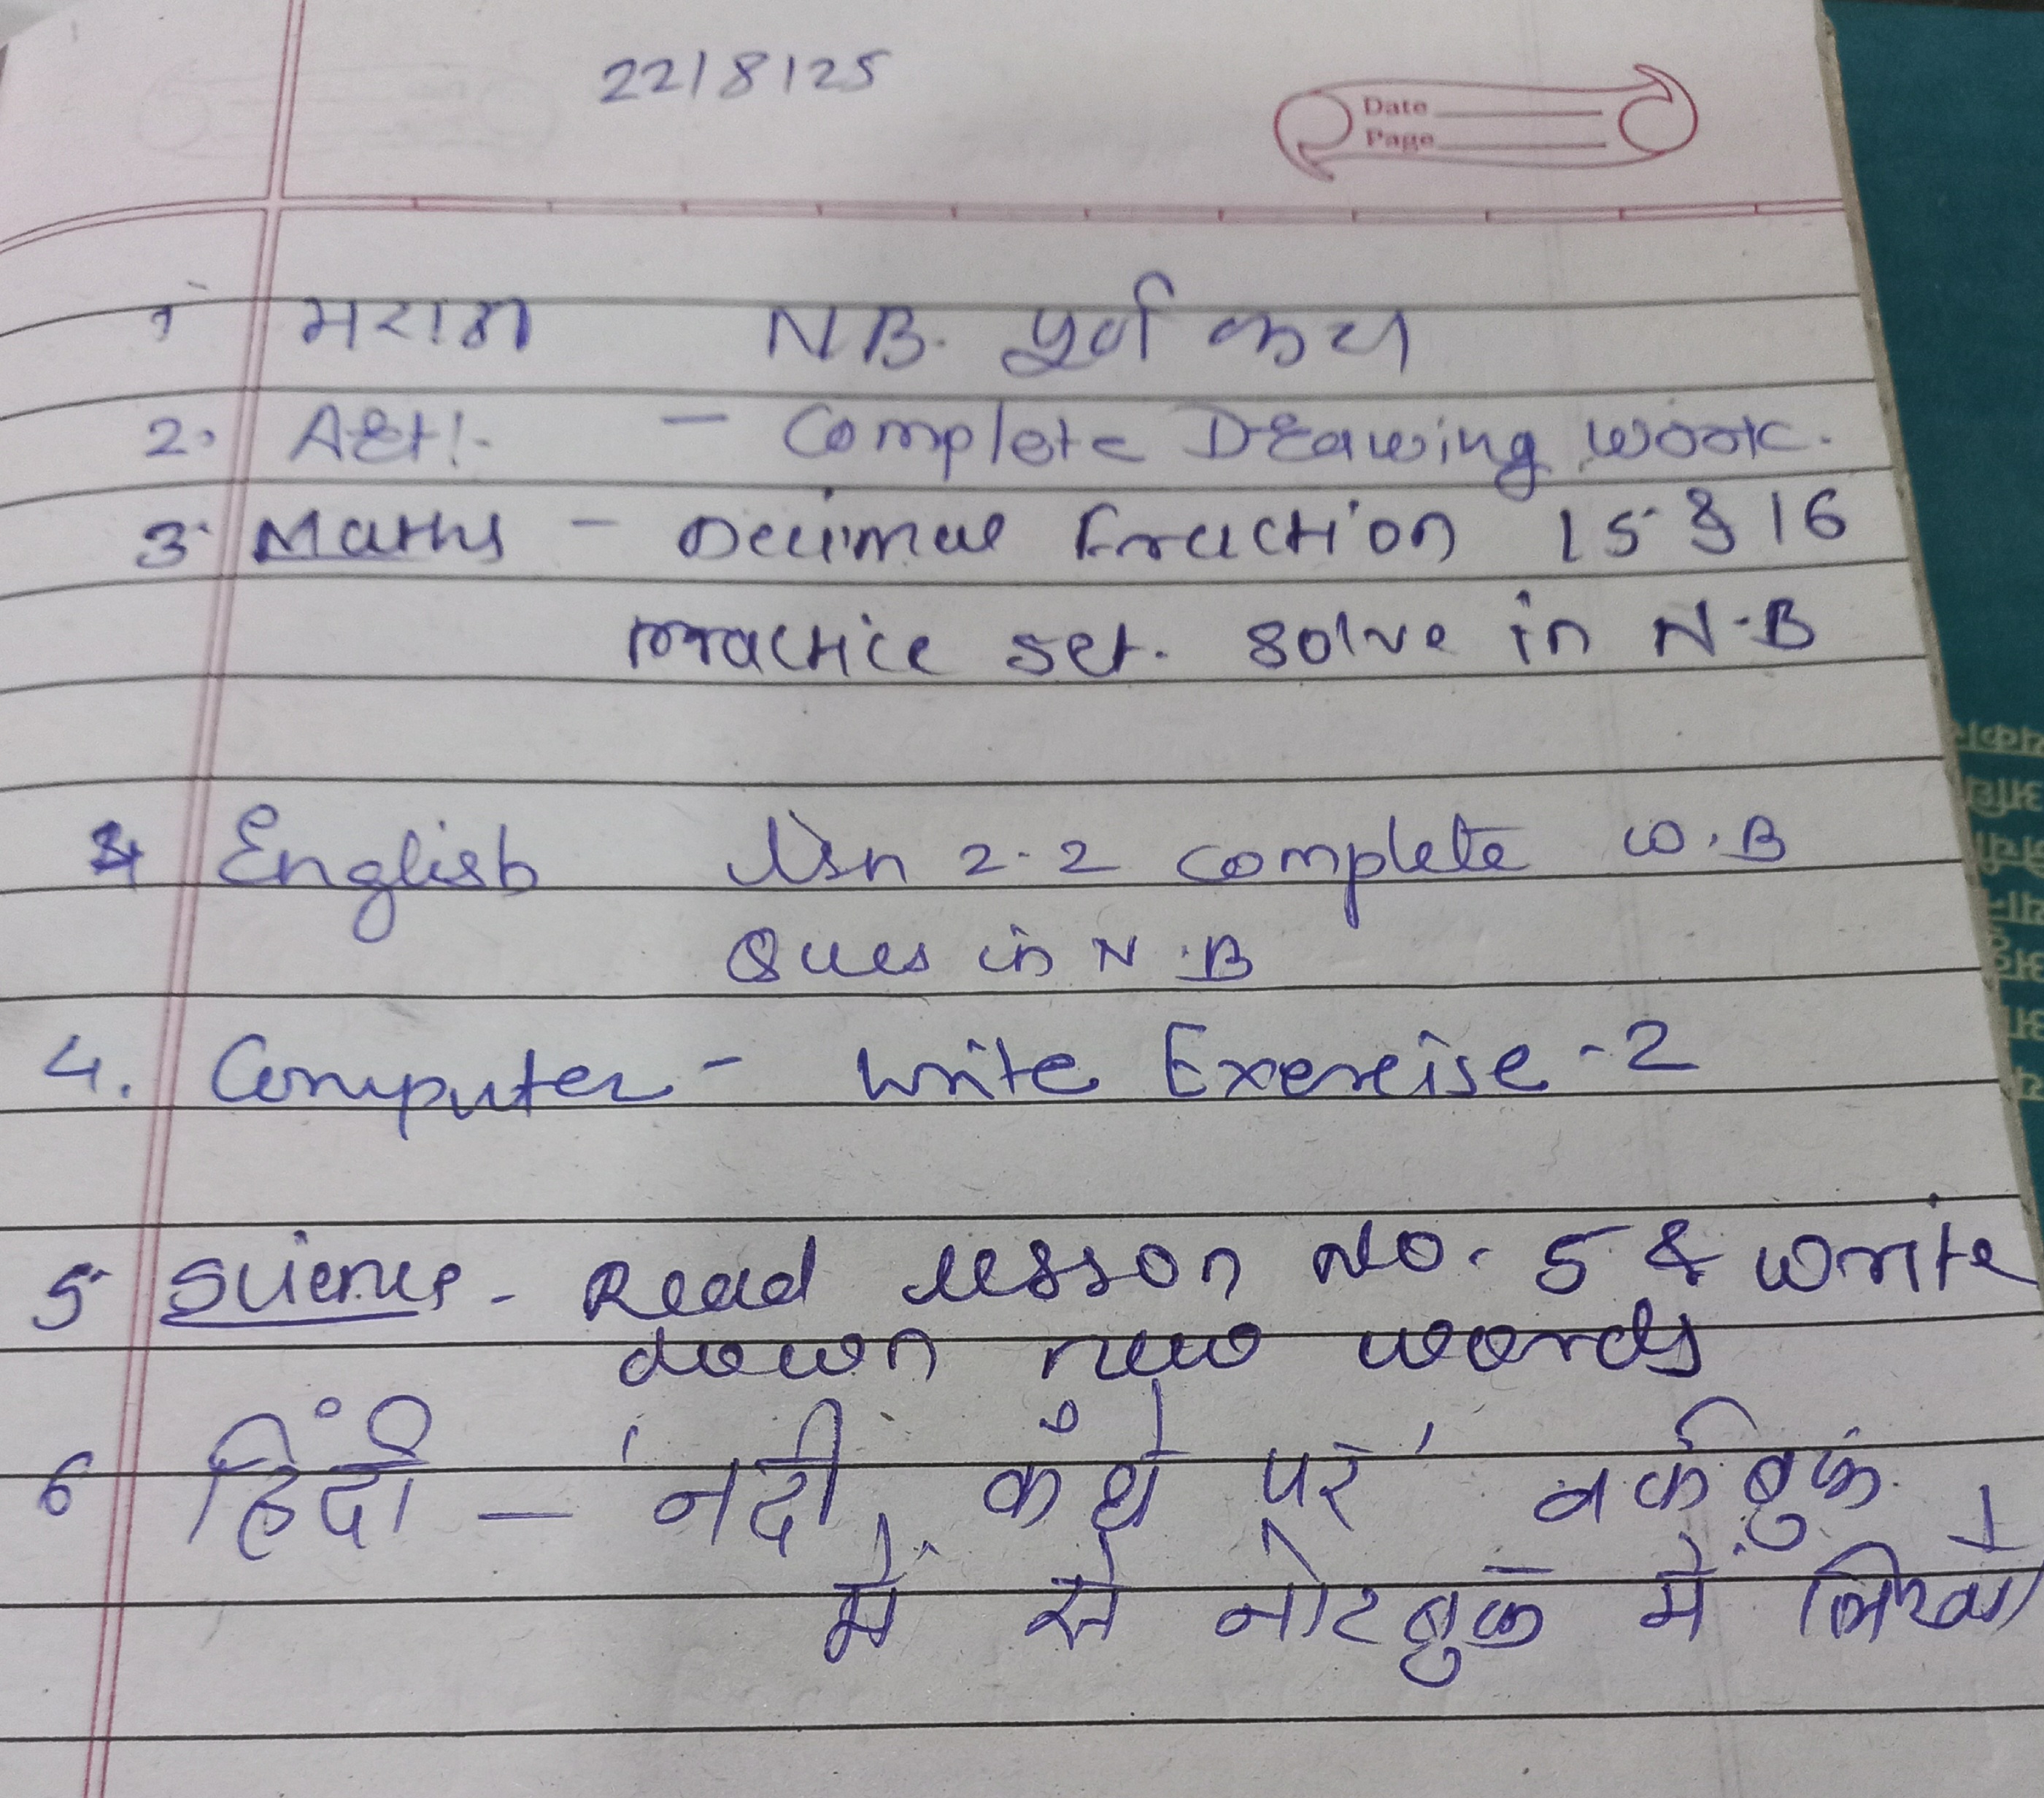 22/8/25
Date
Page
1 मराठी NB. पूर्ण करा
2. Art:- - Complete Drawing work.
3. Maths - Decimal Fraction 15 & 16
practice set. solve in N.B
4 English Lsn 2.2 complete W.B
Ques in N.B
4. Computer - Write Exercise - 2
5 Science - Read lesson No. 5 & write
down new words
6 हिंदी - 'नदी कँधे पर' वर्कबुक
में से नोटबुक में लिखो